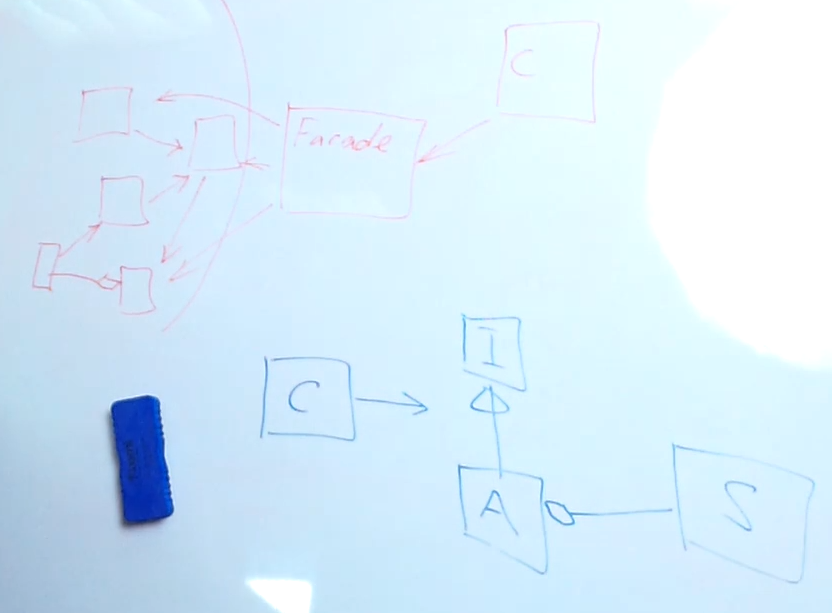 C
Facade
I
C
A
S